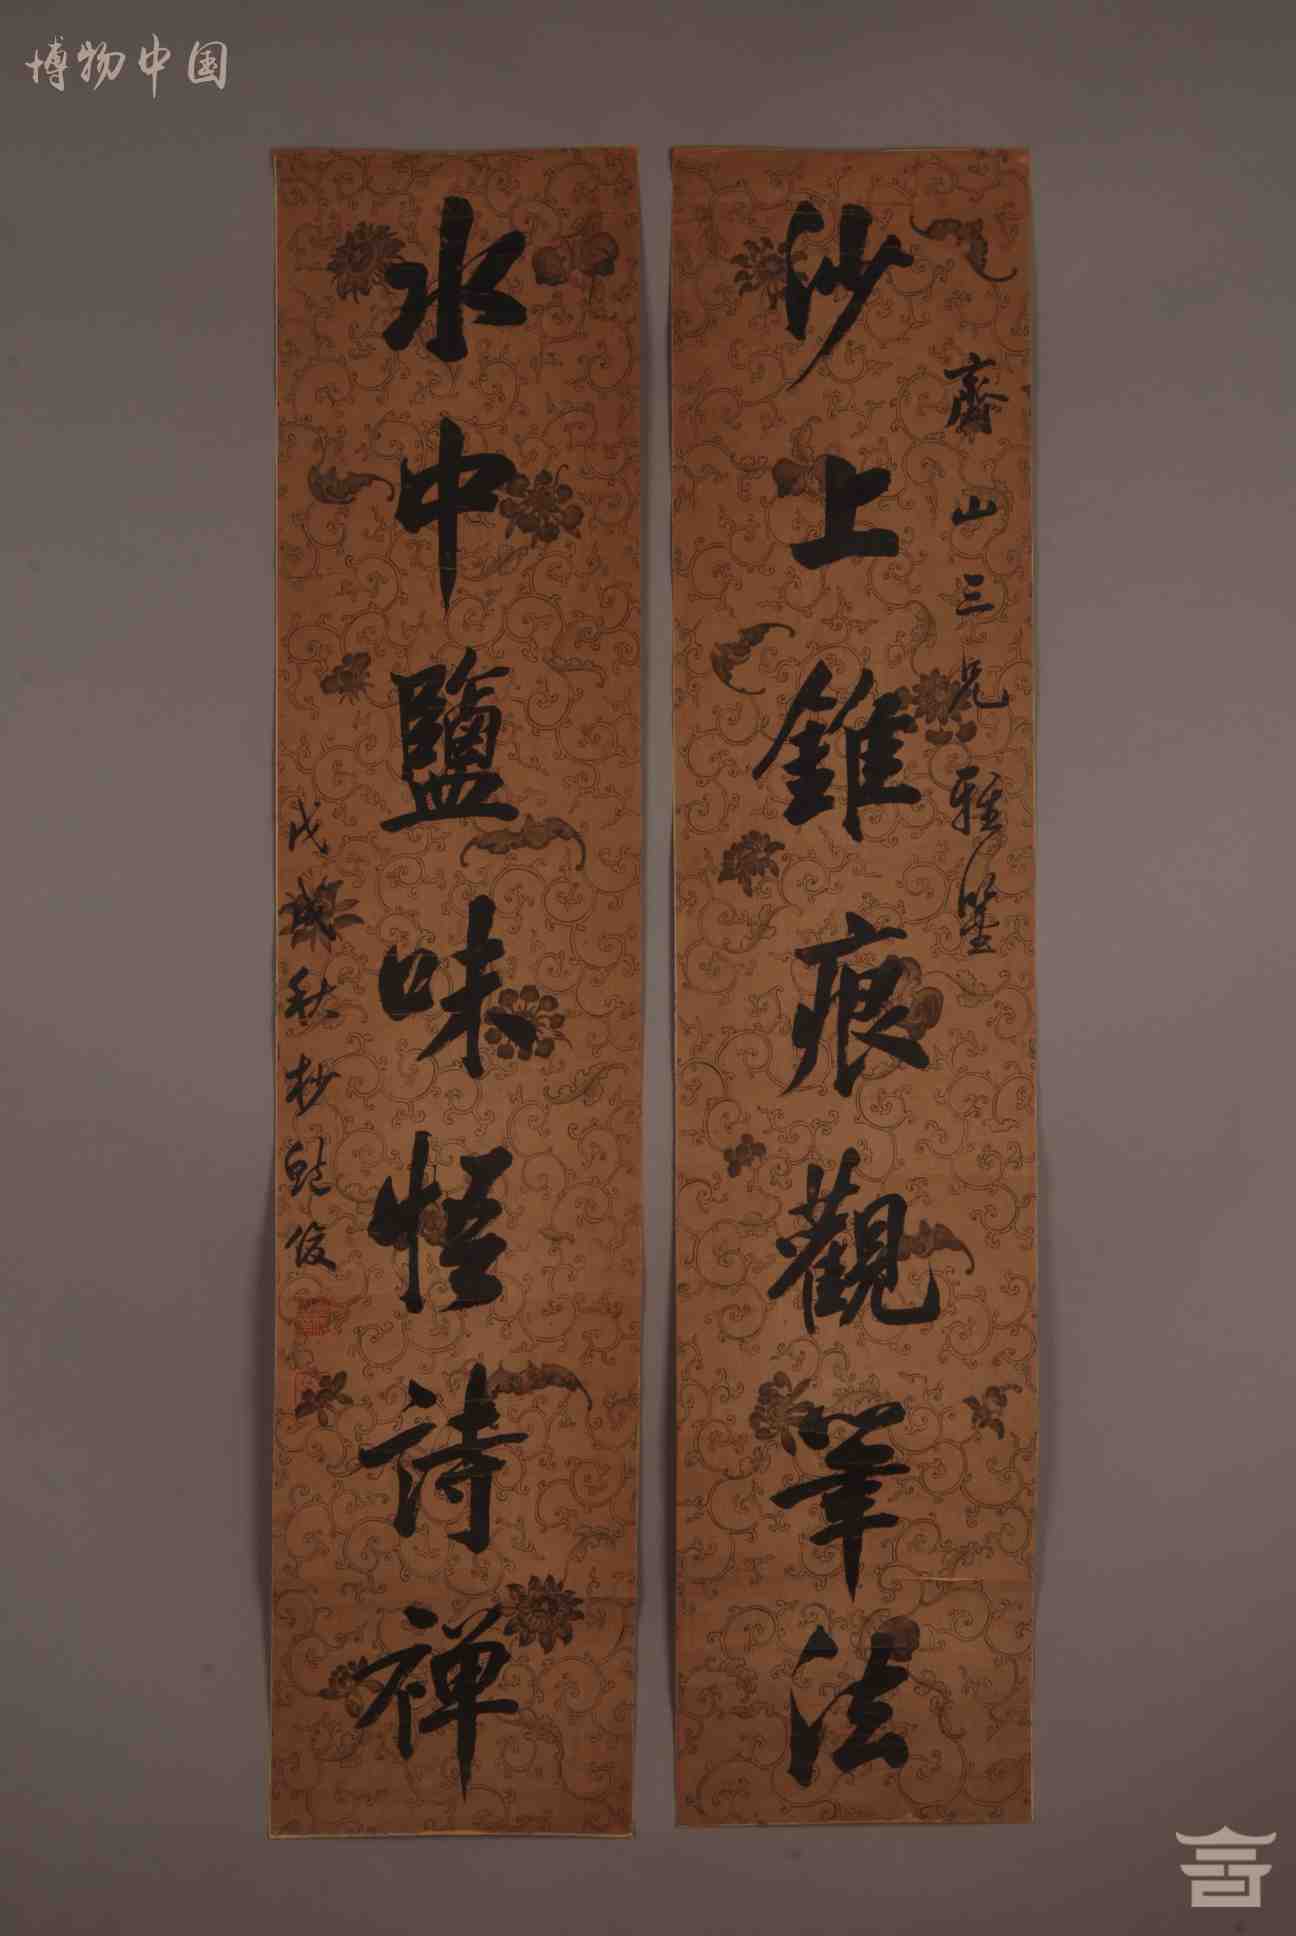 博物中国
齋山三兄雅鑒
沙上錐痕觀筆法
水中鹽味悟詩禪
戊戌秋杪鮑俊